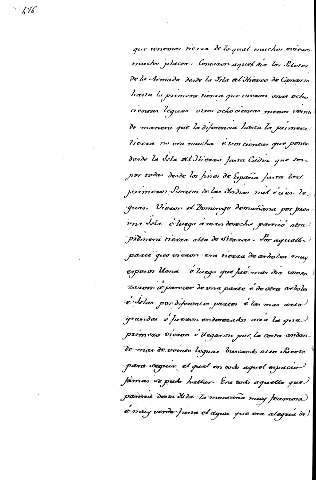 476
que veremos tierra de lo qual muchos ovieron
mucho placer. Contaron aquel dia los Pilotos
de la Armada desde la Isla del Hierro de Canaria
hasta la primera tierra que vieron unos ocho
cientas leguas otros ochocientas menos veinte
de manera que la diferencia hasta la primera
tierra no era mucha e trescientas que ponen
desde la Isla del Hierro fasta Caliz que son
por todas desde los fines de España fasta las
primeras tierras de las Indias mil e cien le
guas. Vieron el Domingo de mañana por proa
una Isla e luego a man derecha pareció otra
primera tierra alta de sierras. Por aquella
parte que vieron era tierra de arboles muy
espesos llana e luego que fue mas dia comen
zaron a parecer de una parte e de otra
e Islas por diferentes partes e las mas
primero vieron e llegaron por la costa andan
do mas de veinte leguas buscando Puerto
para surgir el qual en todo aquel espacio
jamas se pudo hallar. Era todo aquello que
parecia desta Isla montaña muy fermosa
e muy verde fasta el agua que era alegria de